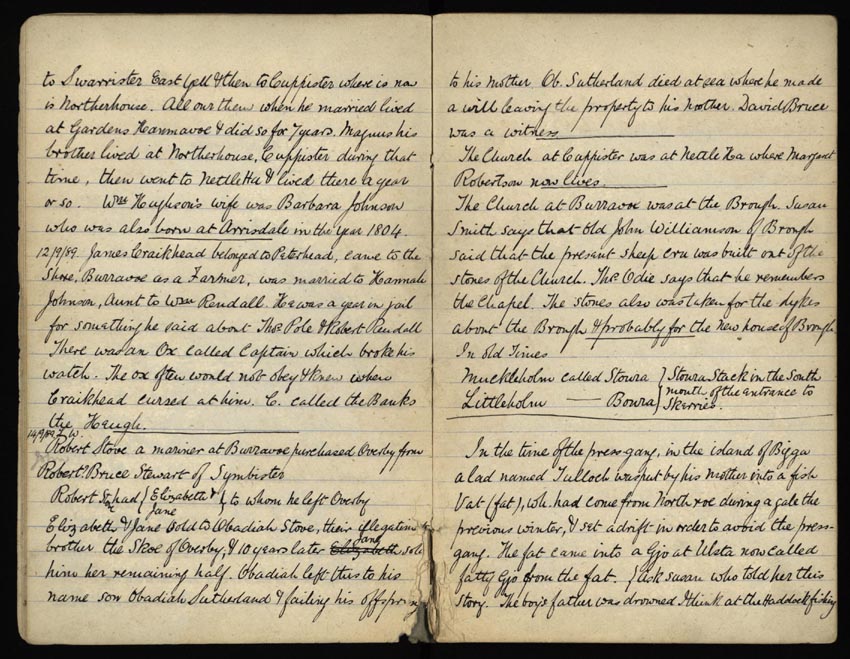 to Swarrister East Yell & then to Cuppister where is now
is Northerhouse. All our then when he married lived
at Gardens Hanmavoe & did so for 7 years. Magnus his
brother lived at Northerhouse, Cuppister during that
time, then went to Nettle Ha & lived there a year
or so. Wm Hughson's wife was Barbara Johnson
who was also born at Arrisdale in the year 1804.
12/9/89. James Craikhead belonged to Peterhead, came to the
Shore, Burravoe as a Farmer, was married to Hannah
Johnson, Aunt to Wm Rendall. He was a year in jail
for something he said about Thos Pole & Robert Rendall
There was an Ox called Captain which broke his
watch. The ox often would not obey & knew when
Craikhead cursed at him. C. called the Banks
the Heugh.
14/9/89. L.W.
Robert Stove a mariner at Burravoe purchased Overby from
Robert Bruce Stewart of Symbister
Robert St. had { Elizabeth & Jane } to whom he left Overby
Elizabeth & Jane sold to Obadiah Stove, their illegatim
brother the Skoe of Overby, & 10 years later ~~Elizabeth~~ Jane sold
him her remaining half. Obadiah left this to his
name son Obadiah Sutherland & failing his offspring
to his Mother. Ob. Sutherland died at sea where he made
a will leaving the property to his Mother. David Bruce
was a witness
The Church at Cuppister was at Nettle Ha where Margaret
Robertson now lives.
The Church at Burravoe was at the Brough. Susan
Smith says that old John Williamson of Brough
said that the present sheep cru was built out of the
stones of the Church. Thos Odie says that he remembers
the Chapel. The stones also was taken for the dykes
about the Brough & probably for the New house of Brough
In old Times
Muckleholm called Stoura } Stoura Stack in the South
Littleholm — Boura } mouth of the entrance to
Skerries.
In the time of the press-gang, in the island of Bigga
a lad named Tulloch was put by his mother into a fish
Vat (fat), wh. had come from North roe during a gale the
previous winter, & set adrift in order to avoid the press-
gang. The fat came into a Gjo at Ulsta now called
fatty Gjo from the fat. } Ask Susan who told her this
story. The boy's father was drowned I think at the Haddock fishing